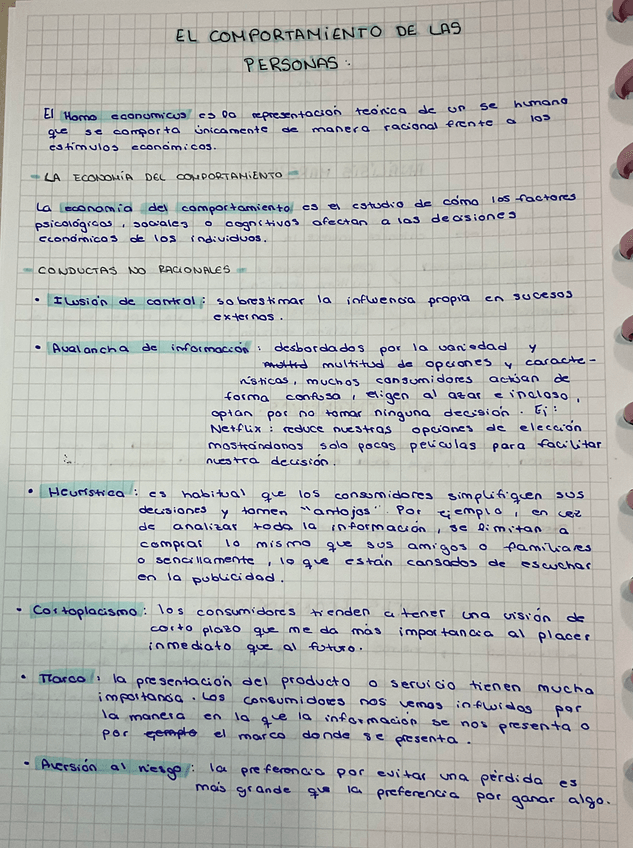 EL COMPORTAMIENTO DE LAS
PERSONAS:
El Homo economicus es la representación teórica de un se humano
que se comporta únicamente de manera racional frente a los
estímulos económicos.
- LA ECONOMÍA DEL COMPORTAMIENTO -
La economía del comportamiento es el estudio de cómo los factores
psicológicos, sociales o cognitivos afectan a las decisiones
económicos de los individuos.
- CONDUCTAS NO RACIONALES -
• Ilusión de control: sobrestimar la influencia propia en sucesos
externos.
• Avalancha de información: desbordados por la variedad y
multitud de opciones y caracte-
rísticas, muchos consumidores actúan de
forma confusa, eligen al azar e incluso,
optan por no tomar ninguna decisión. Ej:
Netflix: reduce nuestras opciones de elección
mostrándonos solo pocas películas para facilitar
nuestra decisión.
• Heurística: es habitual que los consumidores simplifiquen sus
decisiones y tomen "antojos". Por ejemplo, en vez
de analizar toda la información, se limitan a
comprar lo mismo que sus amigos o familiares
o sencillamente, lo que están cansados de escuchar
en la publicidad.
• Cortoplacismo: los consumidores tienden a tener una visión de
corto plazo que me da más importancia al placer
inmediato que al futuro.
• Marco: la presentación del producto o servicio tienen mucha
importancia. Los consumidores nos vemos influidos por
la manera en la que la información se nos presenta o
por ejemplo el marco donde se presenta.
• Aversión al riesgo: la preferencia por evitar una pérdida es
más grande que la preferencia por ganar algo.